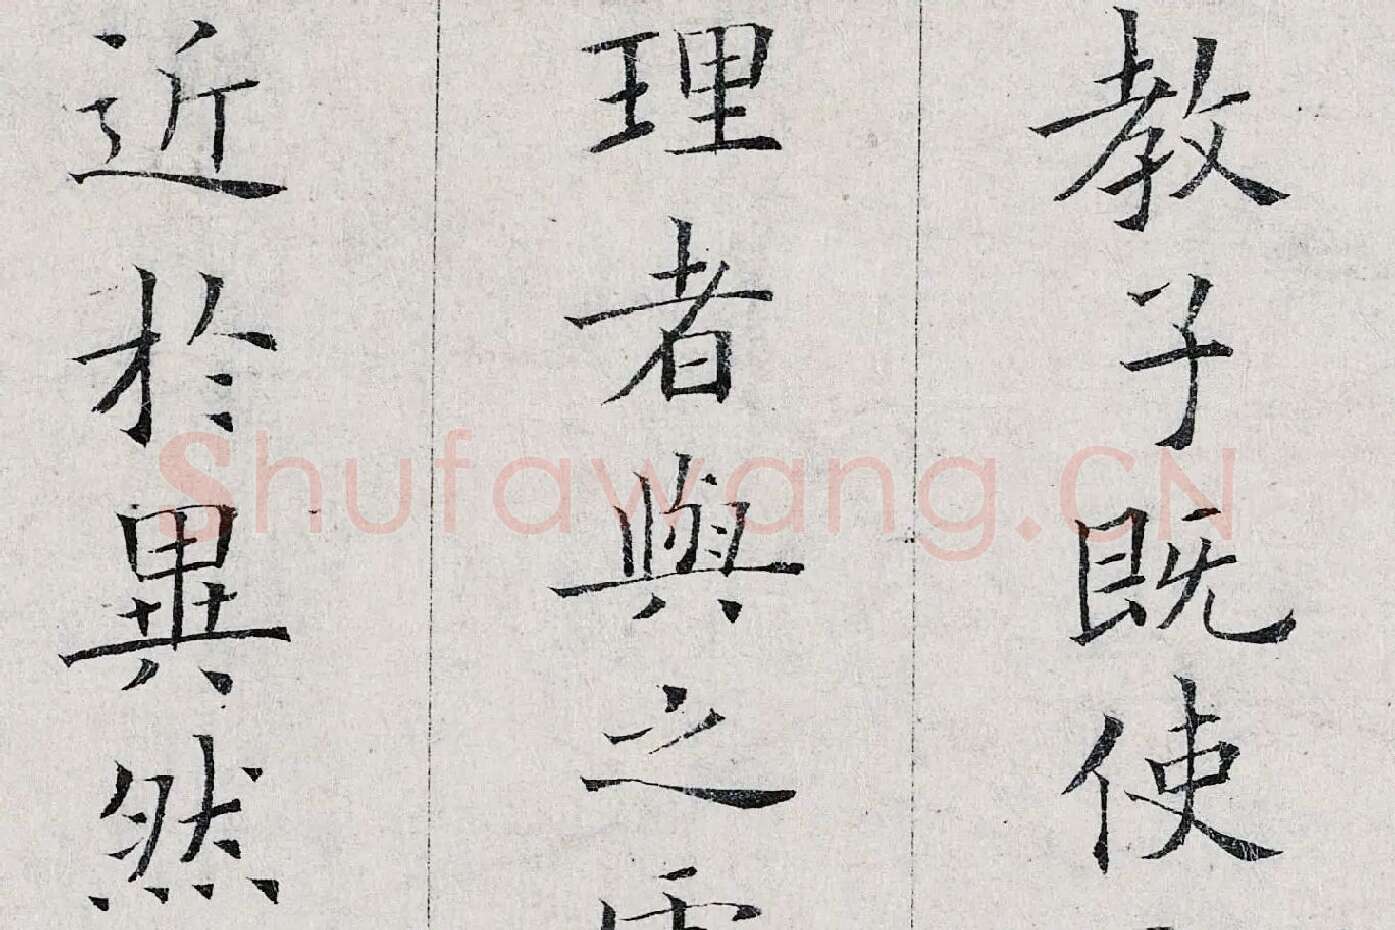 教子既使
理者與之
近於異然
Shufawang.CN